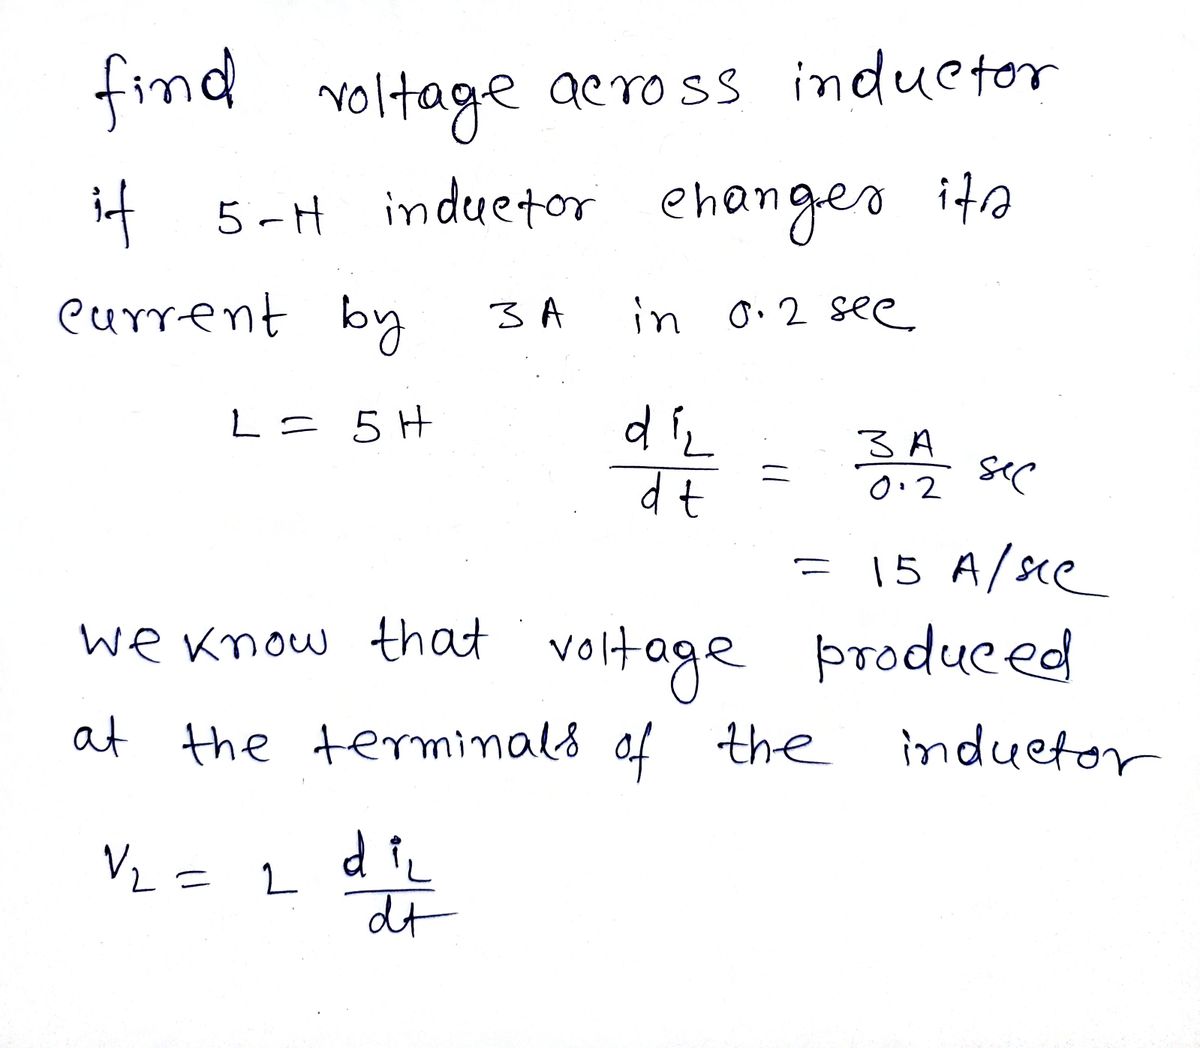 find voltage across inductor
if 5-H inductor changes its
current by 3A in 0.2 sec
L = 5H diL/dt = 3A/0.2 sec
= 15 A/sec
we know that voltage produced
at the terminals of the inductor
VL = L diL/dt